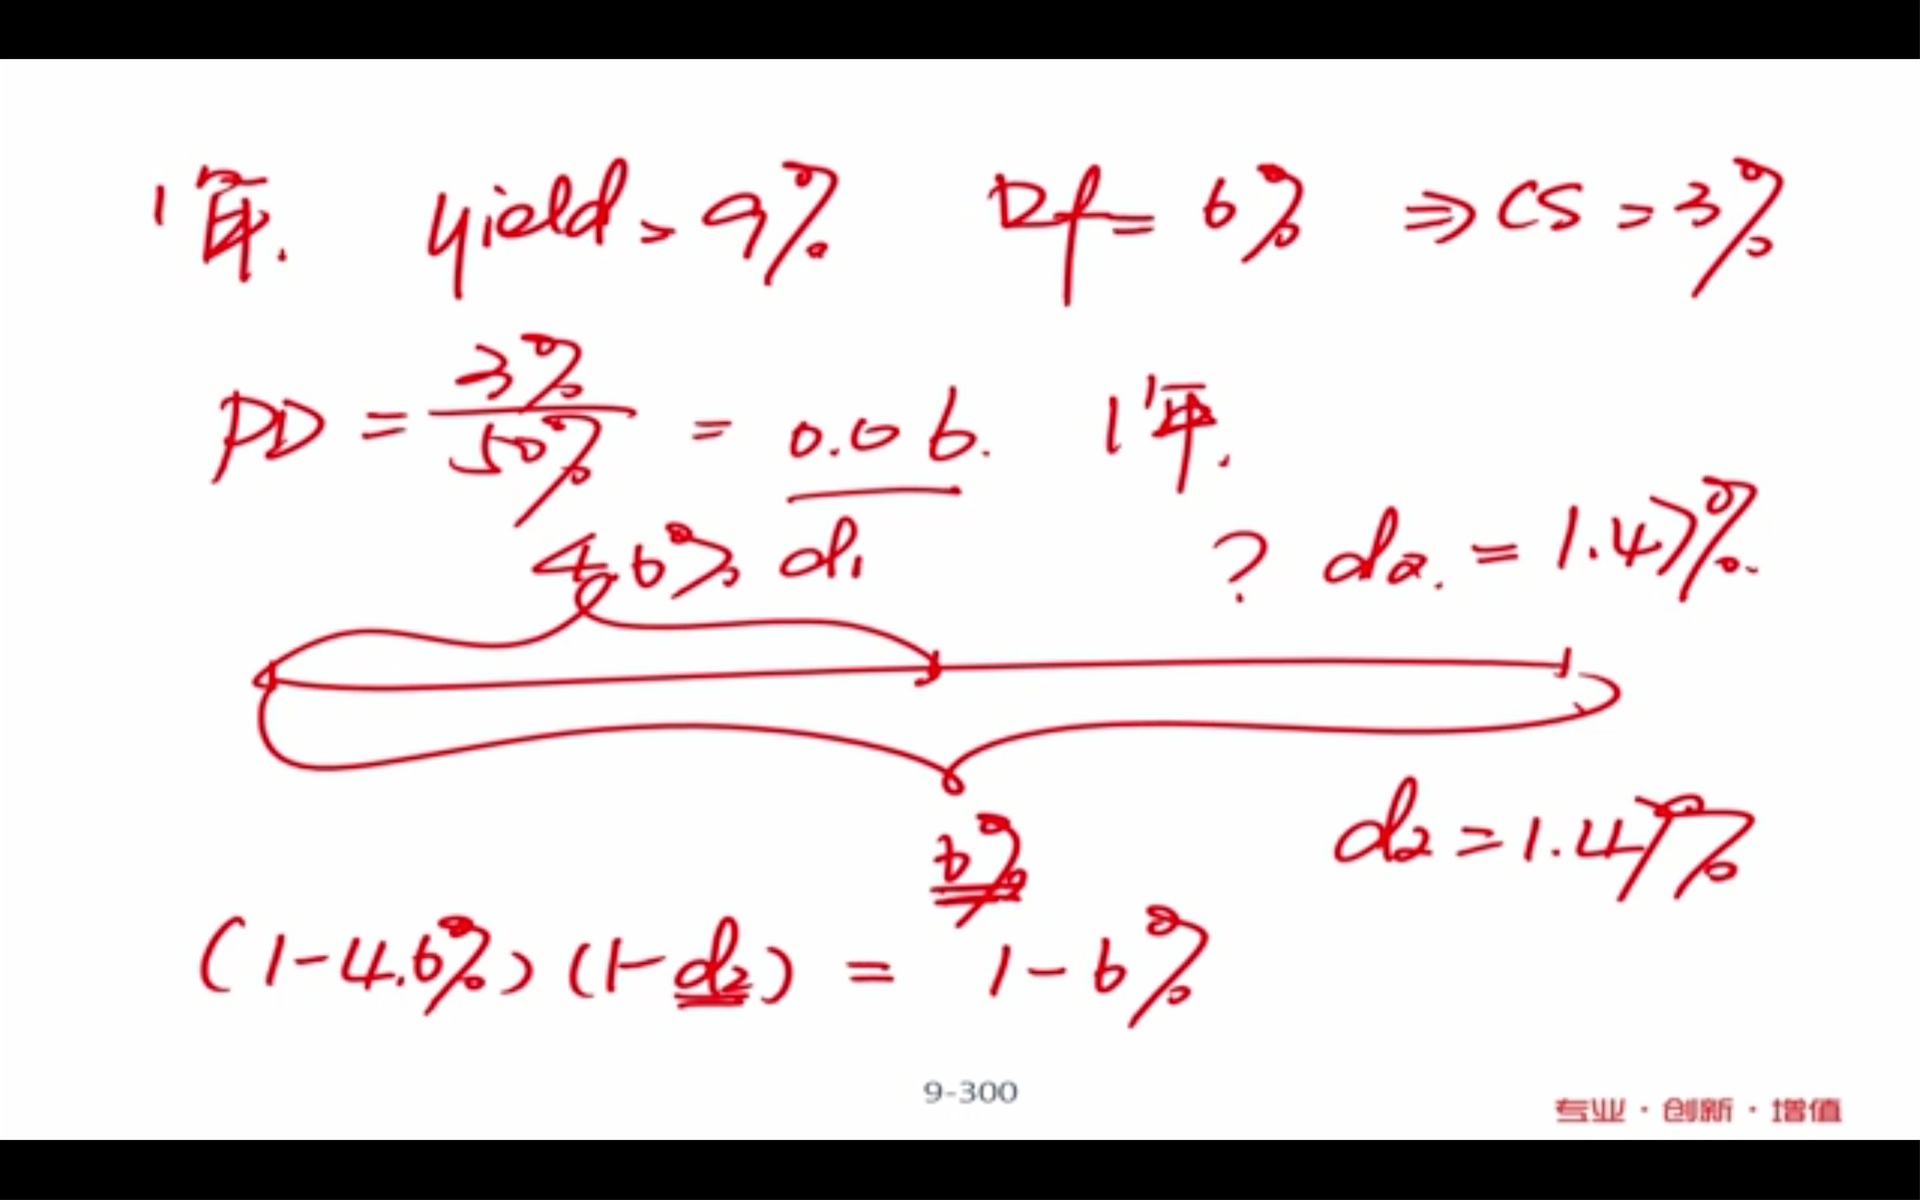 1年. yield = 9% Rf = 6% ⇒ CS = 3%
PD = 3% / 50% = 0.06. 1年.
4.6% d1 ? d2. = 1.47%.
6%
d2 = 1.47%
(1-4.6%) (1-d2) = 1-6%
9-300
专业·创新·增值